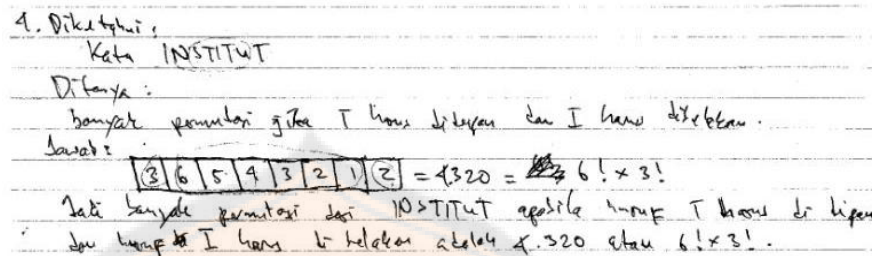 4. Diketahui :
Kata INSTITUT
Ditanya :
banyak permutasi jika T harus didepan dan I harus dibelakan.
Jawab :
3 6 5 4 3 2 1 2 = 4320 = 6! × 3!
Jadi banyak permutasi dari INSTITUT apabila huruf T harus di depan
dan huruf I harus di belakan adalah 4.320 atau 6! × 3!.